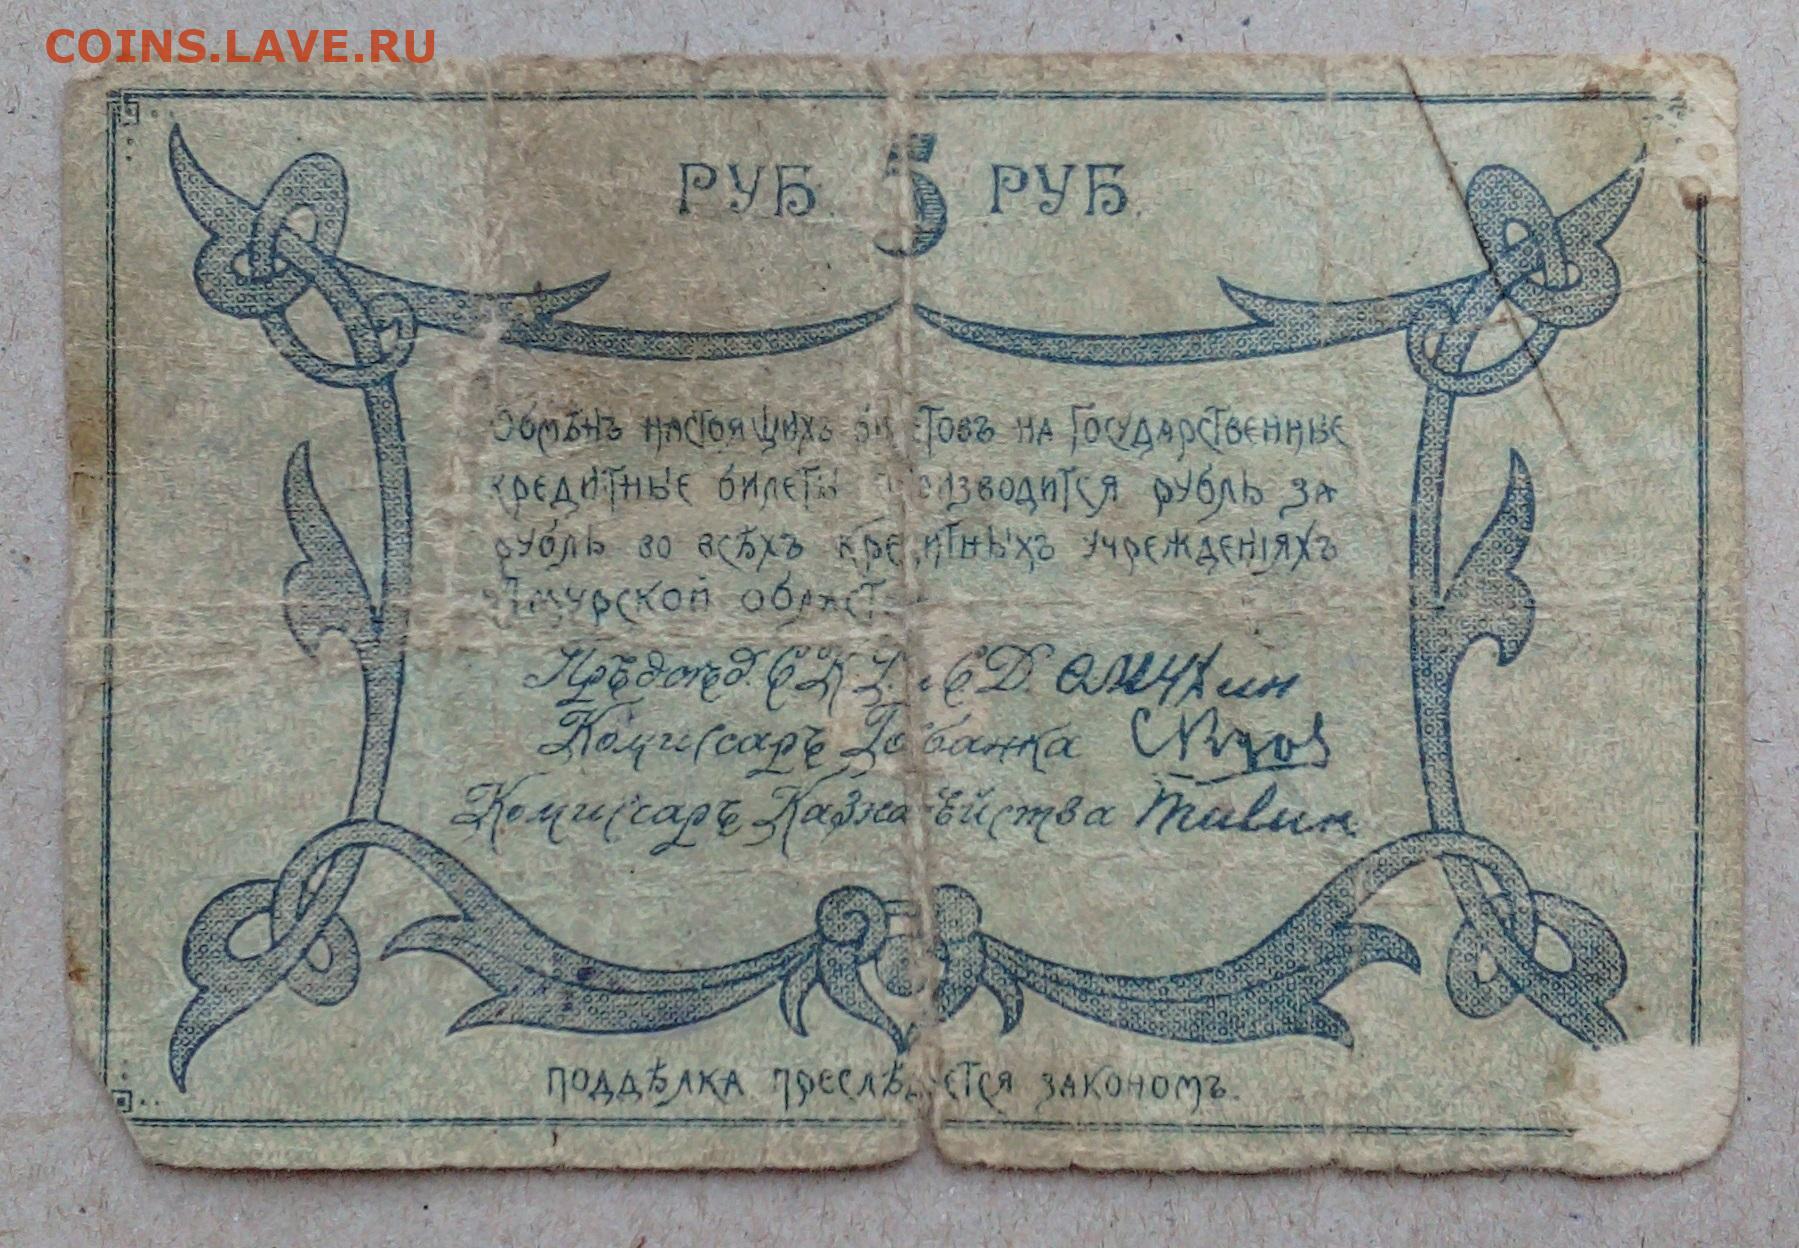 COINS.LAVE.RU
РУБ. 5 РУБ.
Обмѣнъ настоящихъ билетовъ на Государственные
кредитные билеты производится рубль за
рубль во всѣхъ кредитныхъ учрежденіяхъ
Амурской област
Комиссаръ Госбанка
Комиссаръ Казначейства
ПОДДѢЛКА ПРЕСЛѢДУЕТСЯ ЗАКОНОМЪ.